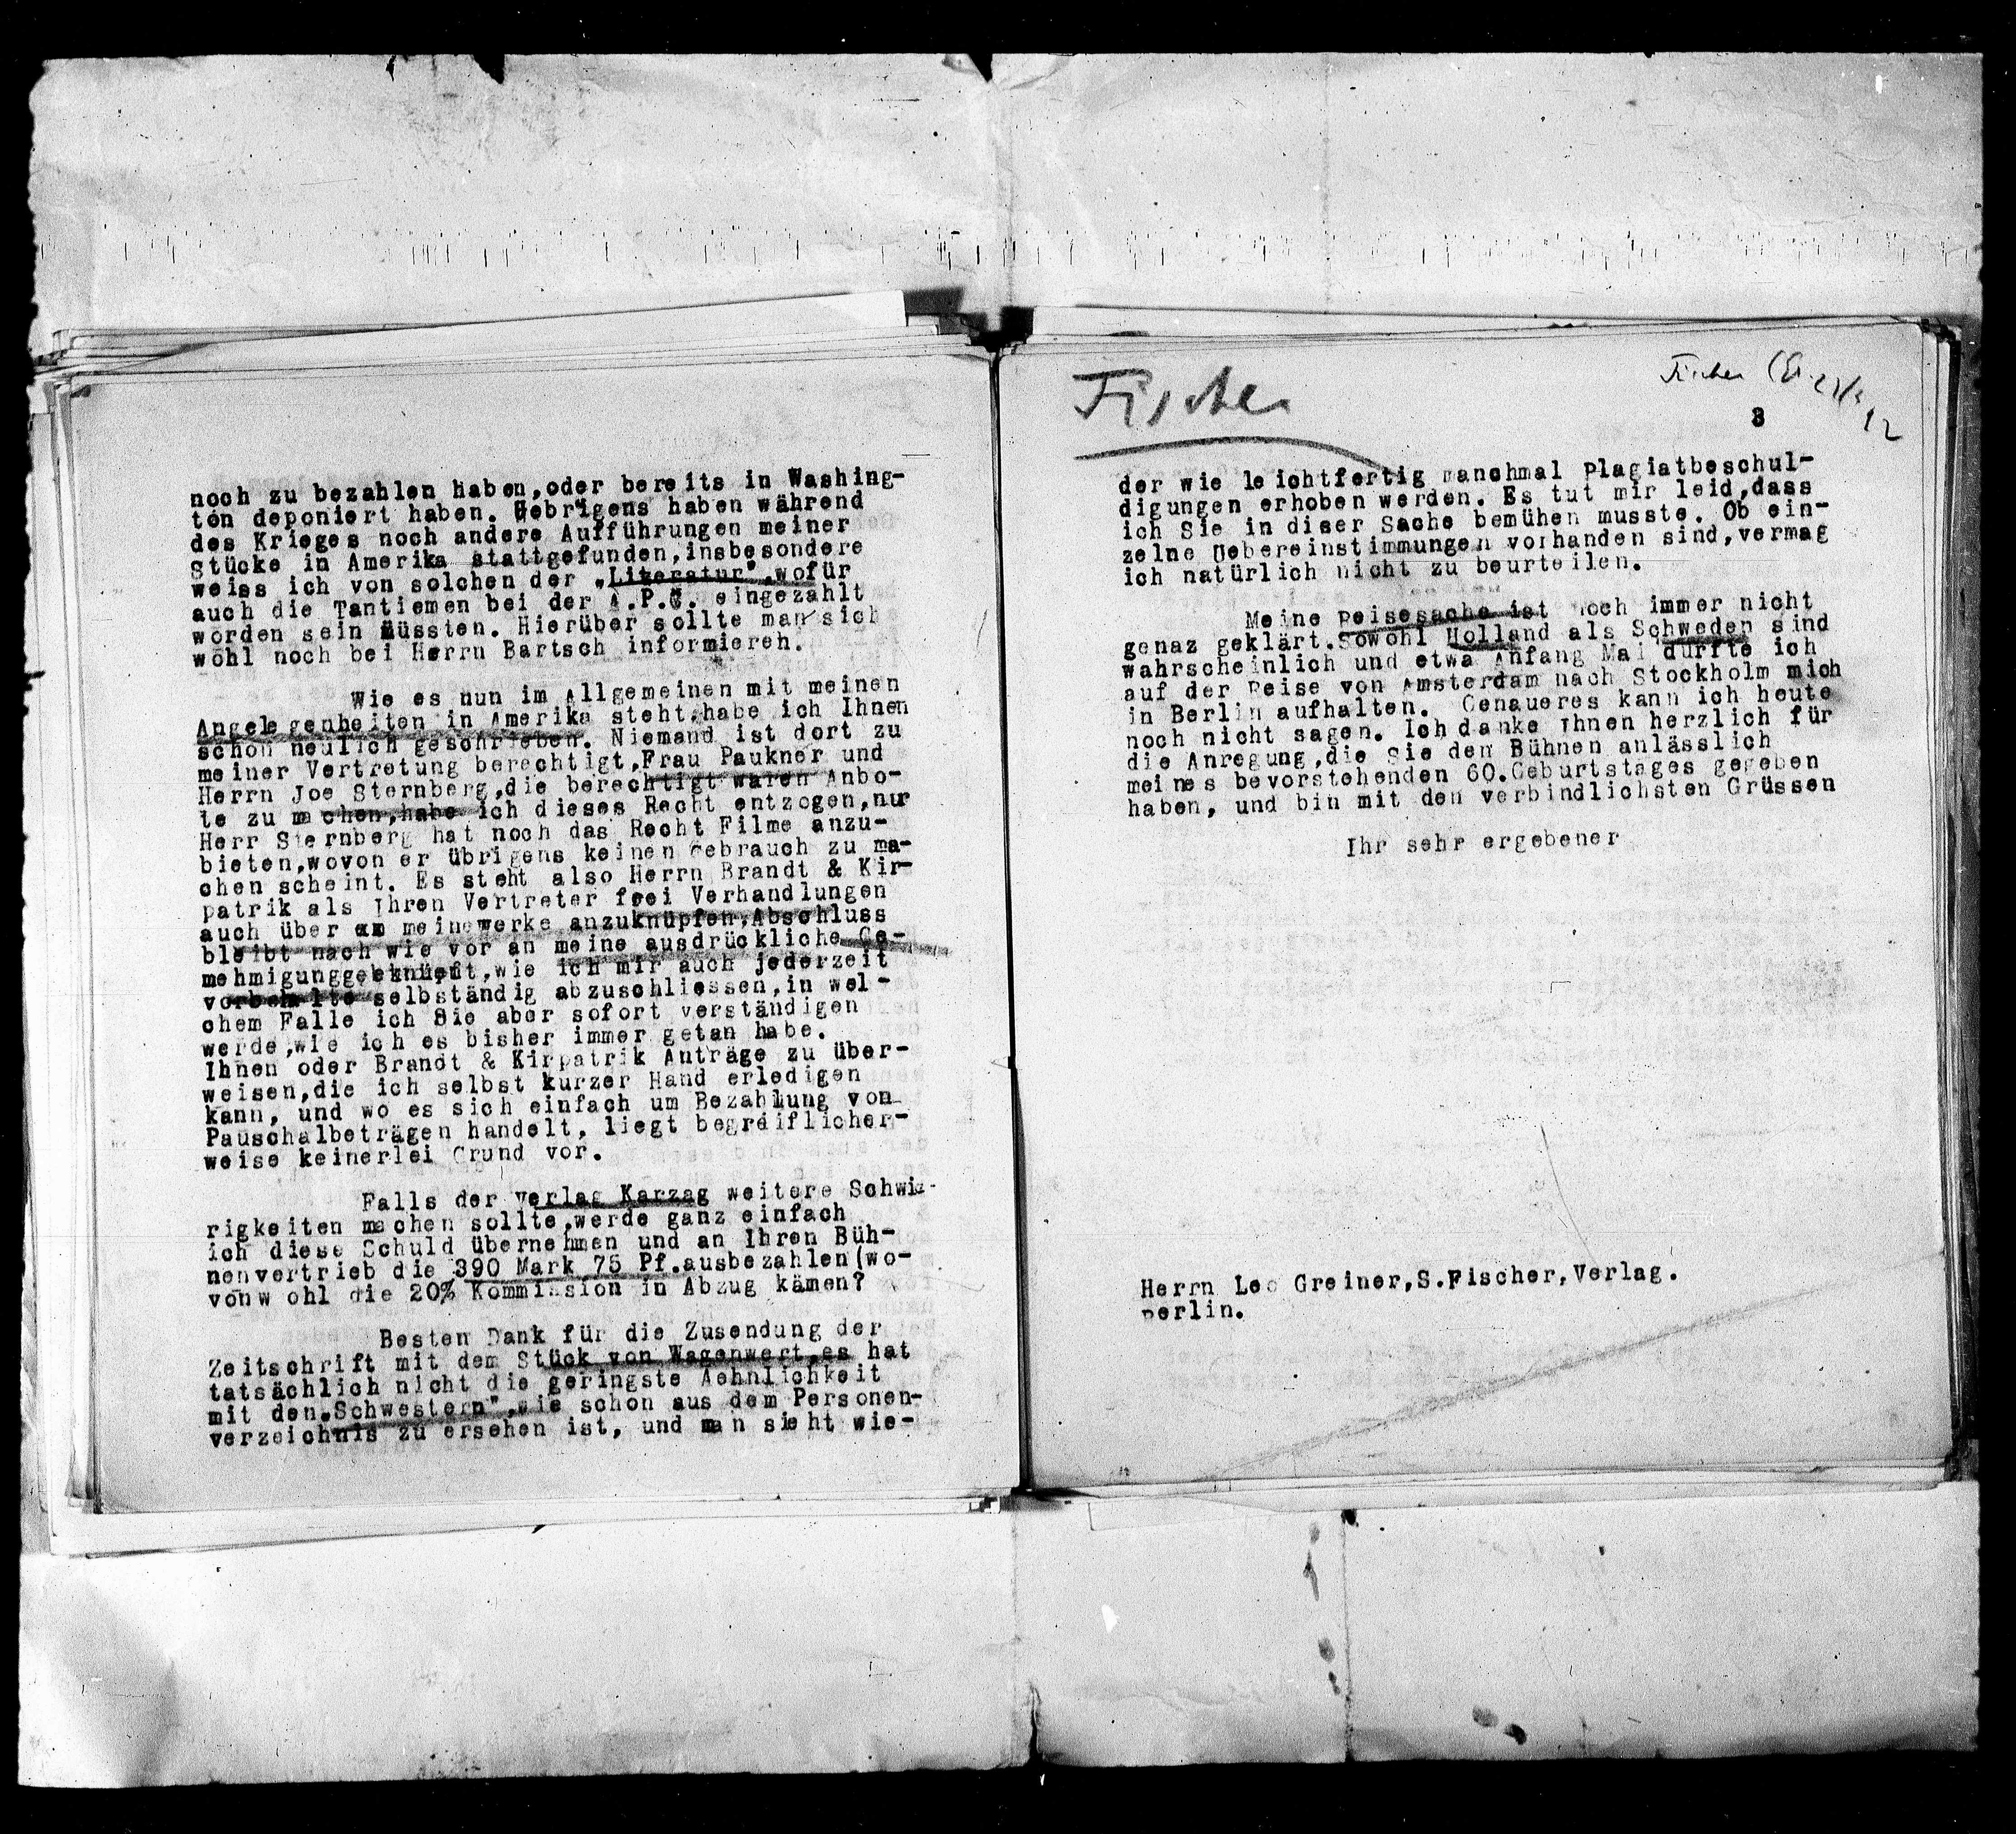 noch zu bezahlen haben,oder bereits in Washing-
ton deponiert haben. Uebrigens haben während
des Krieges noch andere Aufführungen meiner
Stücke in Amerika stattgefunden,insbesondere
weiss ich von solchen der „Literatur",wofür
auch die Tantiemen bei der A.P.C. eingezahlt
worden sein müssten. Hierüber sollte man sich
wohl noch bei Herrn Bartsch informieren.
Wie es nun im Allgemeinen mit meinen
Angelegenheiten in Amerika steht,habe ich Ihnen
schon neulich geschrieben. Niemand ist dort zu
meiner Vertretung berechtigt,Frau Paukner und
Herrn Joe Sternberg,die berechtigt waren Anbo-
te zu machen,habe ich dieses Recht entzogen,nur
Herr Sternberg hat noch das Recht Filme anzu-
bieten,wovon er übrigens keinen Gebrauch zu ma-
chen scheint. Es steht also Herrn Brandt & Kir-
patrik als Ihren Vertreter frei Verhandlungen
auch über meine Werke anzuknüpfen,Abschluss
bleibt nach wie vor an meine ausdrückliche Ge-
mehmigung geknüpft,wie ich mir auch jederzeit
vorbehalte selbständig abzuschliessen,in wel-
chem Falle ich Sie aber sofort verständigen
werde,wie ich es bisher immer getan habe.
Ihnen oder Brandt & Kirpatrik Anträge zu über-
weisen,die ich selbst kurzer Hand erledigen
kann, und wo es sich einfach um Bezahlung von
Pauschalbeträgen handelt, liegt begreiflicher-
weise keinerlei Grund vor.
Falls der Verlag Karzag weitere Schwie-
rigkeiten machen sollte,werde ganz einfach
ich diese Schuld übernehmen und an Ihren Büh-
nenvertrieb die 390 Mark 75 Pf.ausbezahlen(wo-
von wohl die 20% Kommission in Abzug kämen?
Besten Dank für die Zusendung der
Zeitschrift mit dem Stück von Wagenwert,es hat
tatsächlich nicht die geringste Aehnlichkeit
mit den„Schwestern",wie schon aus dem Personen-
verzeichnis zu ersehen ist, und man sieht wie-
Fischer
Fischer
3
12
der wie leichtfertig manchmal Plagiatbeschul-
digungen erhoben werden. Es tut mir leid,dass
ich Sie in diser Sache bemühen musste. Ob ein-
zelne Uebereinstimmungen vorhanden sind,vermag
ich natürlich nicht zu beurteilen.
Meine Reisesache ist noch immer nicht
genaz geklärt.Sowohl Holland als Schweden sind
wahrscheinlich und etwa Anfang Mai dürfte ich
auf der Reise von Amsterdam nach Stockholm mich
in Berlin aufhalten. Genaueres kann ich heute
noch nicht sagen. Ich danke Ihnen herzlich für
die Anregung,die Sie den Bühnen anlässlich
meines bevorstehenden 60.Geburtstages gegeben
haben, und bin mit den verbindlichsten Grüssen
Ihr sehr ergebener
Herrn Leo Greiner,S.Fischer,Verlag.
Berlin.